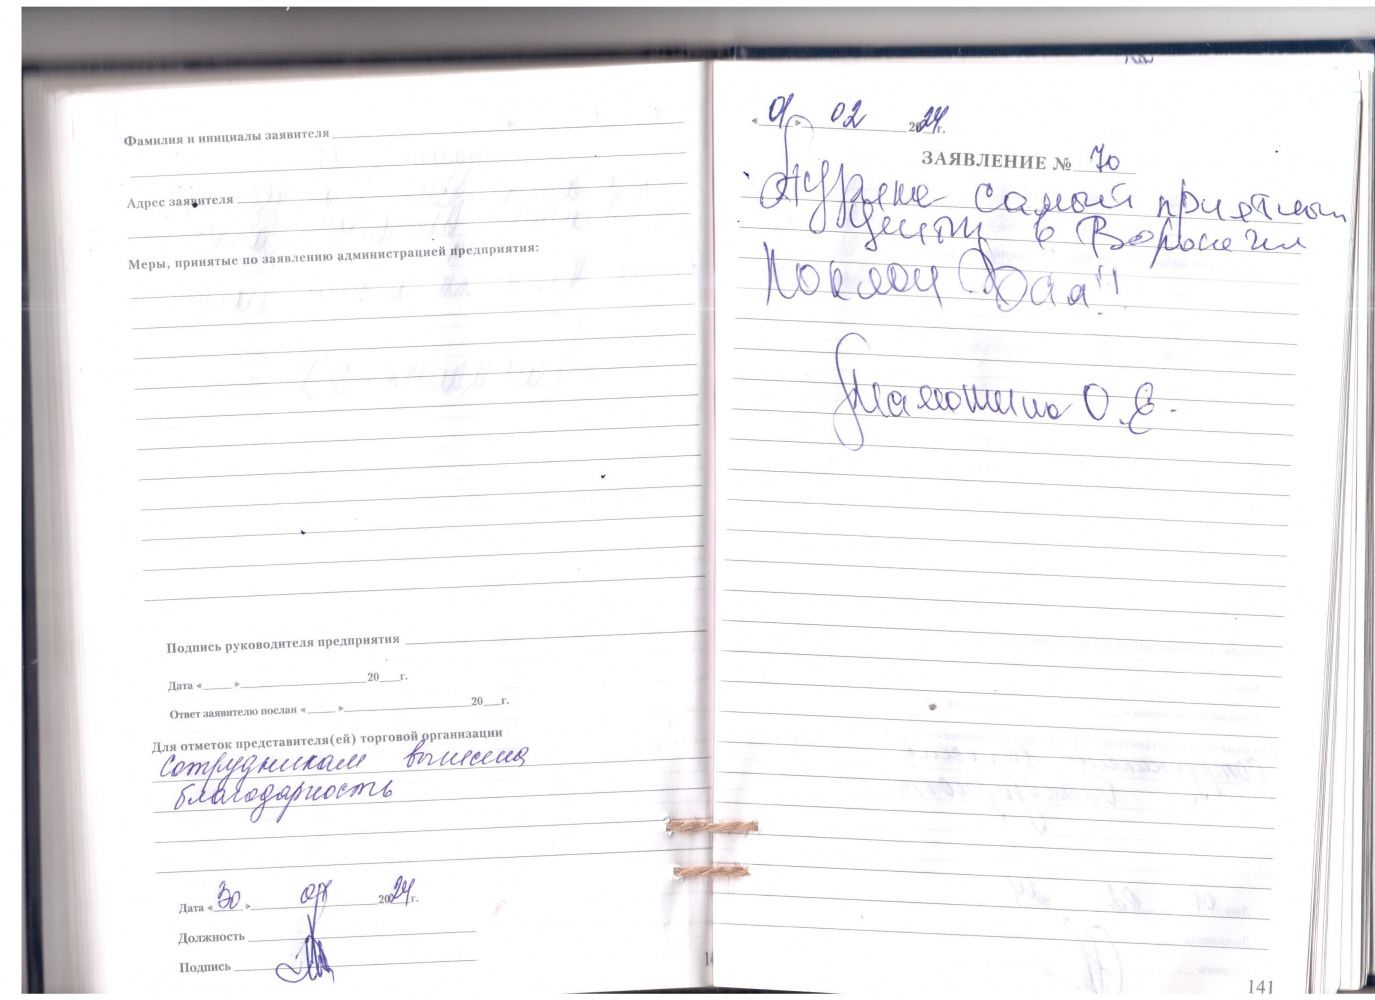 Фамилия и инициалы заявителя
Адрес заявителя
Меры, принятые по заявлению администрацией предприятия:
Подпись руководителя предприятия
Дата « » 20 г.
Ответ заявителю послан « » 20 г.
Для отметок представителя(ей) торговой организации
Сотрудникам вынесена
благодарность
Дата «30» 2024 г.
Должность
Подпись
02 2024 г.
ЗАЯВЛЕНИЕ № 70
самый приятный
центр в Воронеже
Поклон Вам!!
О.Е.
141